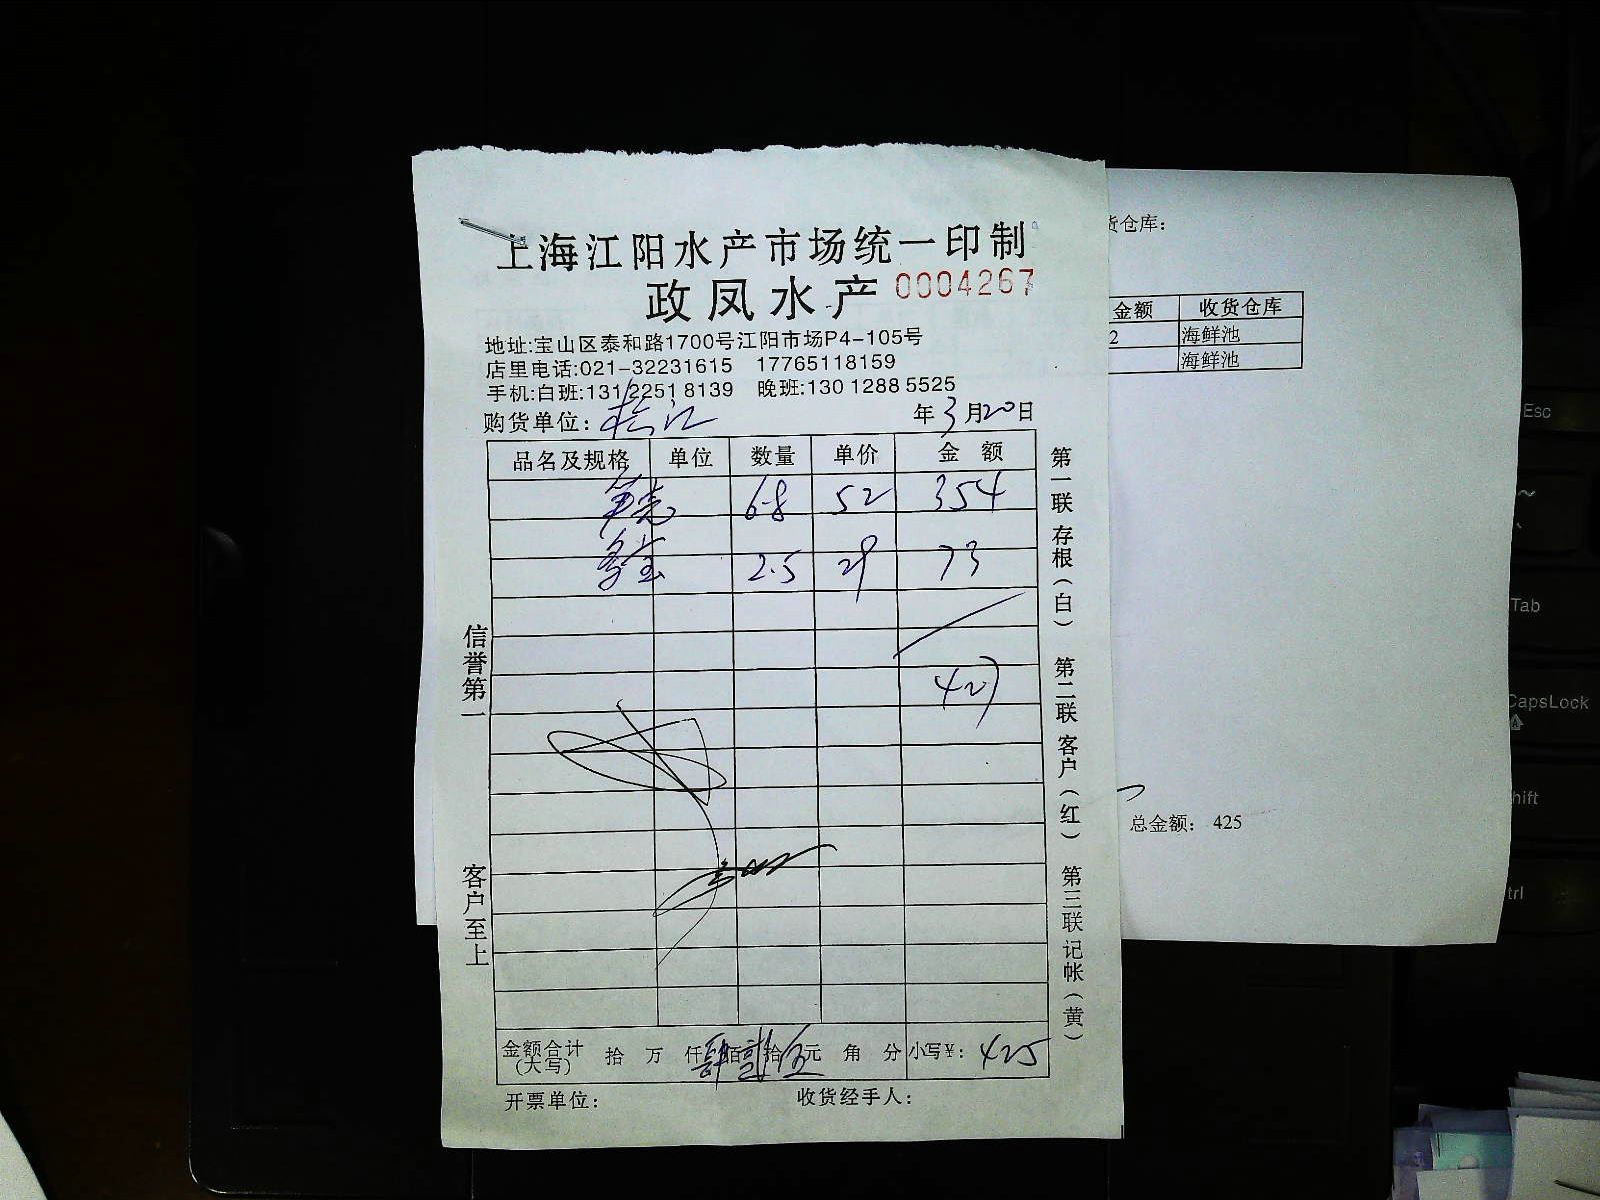 上海江阳水产市场统一印制
政凤水产 0004267
地址:宝山区泰和路1700号江阳市场P4-105号
店里电话:021-32231615 17765118159
手机:白班:131 2251 8139 晚班:130 1288 5525
购货单位: 松江 年3月20日
品名及规格 单位 数量 单价 金额
笋壳 6.8 52 354
多宝 2.5 29 73
427
金额合计(大写) 拾 万 仟肆佰贰拾伍元 角 分 小写¥: 425
开票单位: 收货经手人:
信誉第一
客户至上
第一联 存根(白) 第二联 客户(红) 第三联 记帐(黄)
货仓库:
金额 收货仓库
2 海鲜池
海鲜池
总金额: 425
Esc
~
Tab
CapsLock
hift
trl